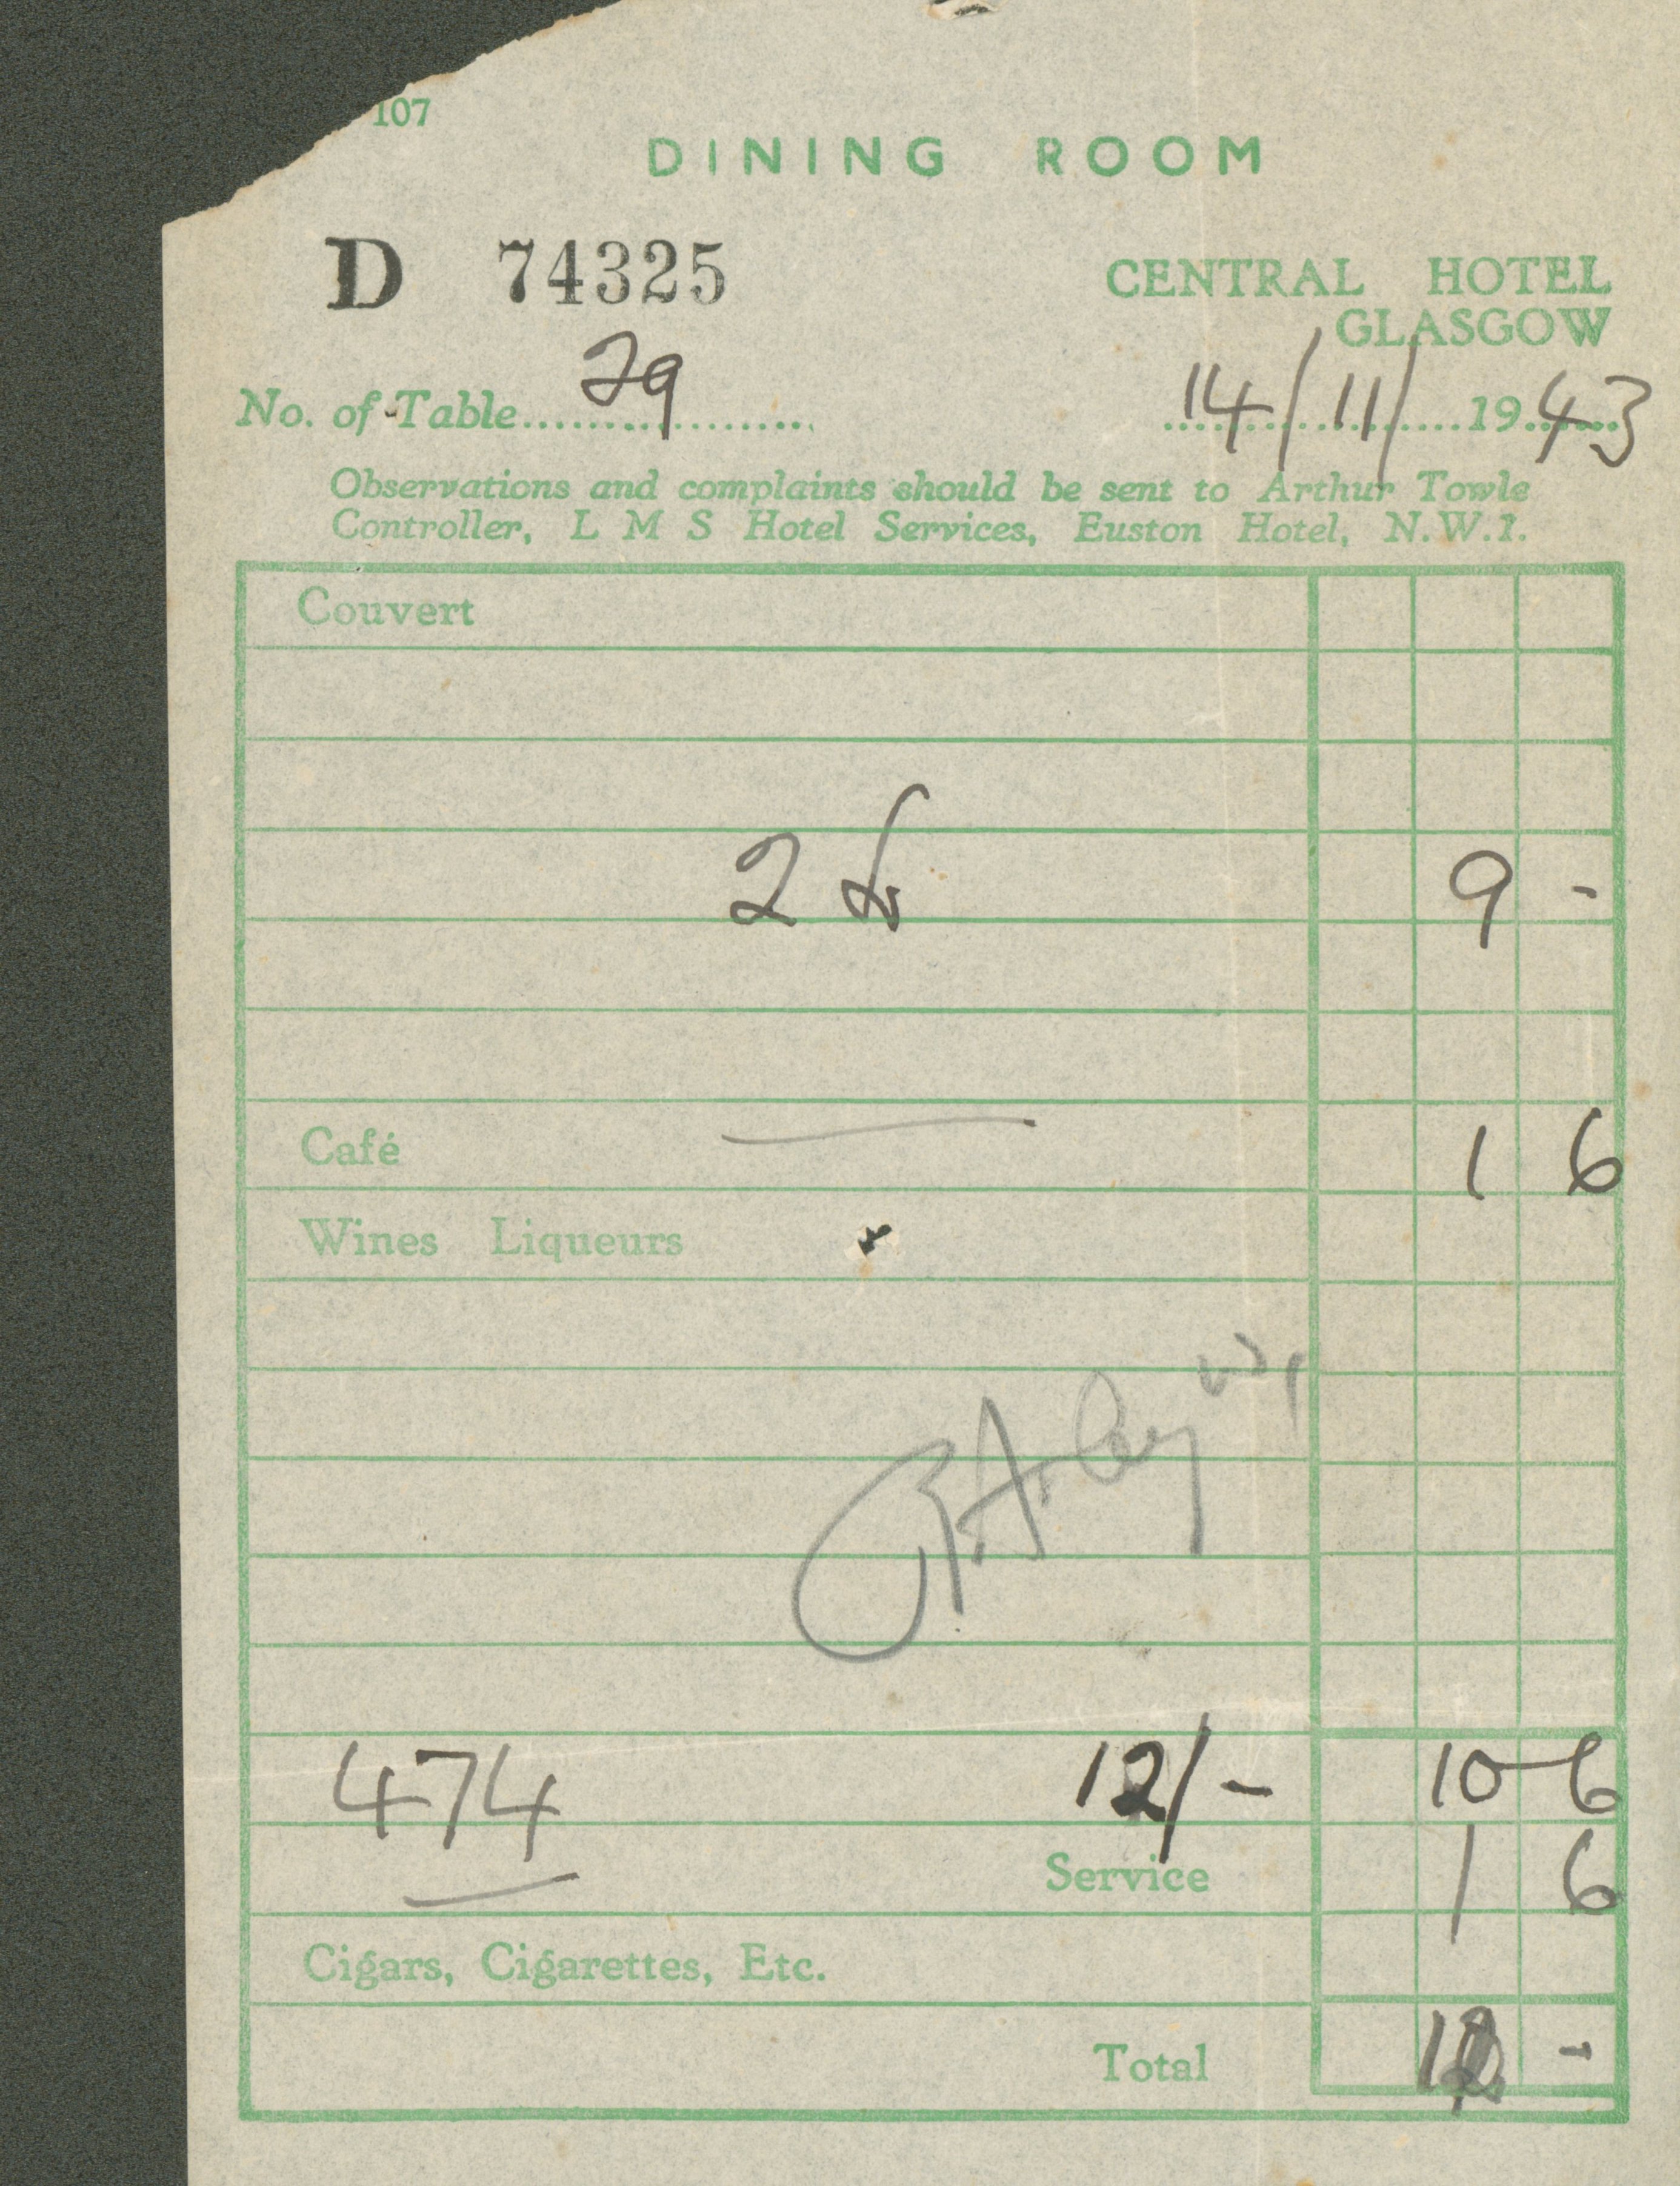 107
DINING ROOM
D 74325
CENTRAL HOTEL
GLASGOW
No. of Table 29
14/11/ 1943
Observations and complaints should be sent to Arthur Towle
Controller, L M S Hotel Services, Euston Hotel, N.W.1.
Couvert
2 9 -
Café 1 6
Wines Liqueurs
474 12/- 10 6
Service 1 6
Cigars, Cigarettes, Etc.
Total 12 -